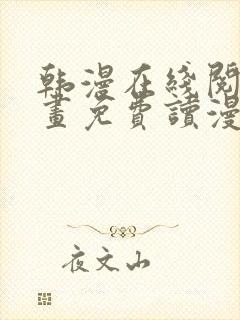 韩漫在线阅
画免费读漫
夜文山